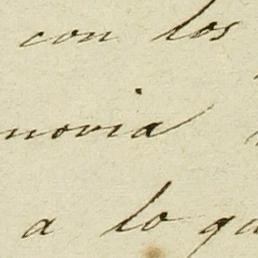 con los
novia
a lo qu